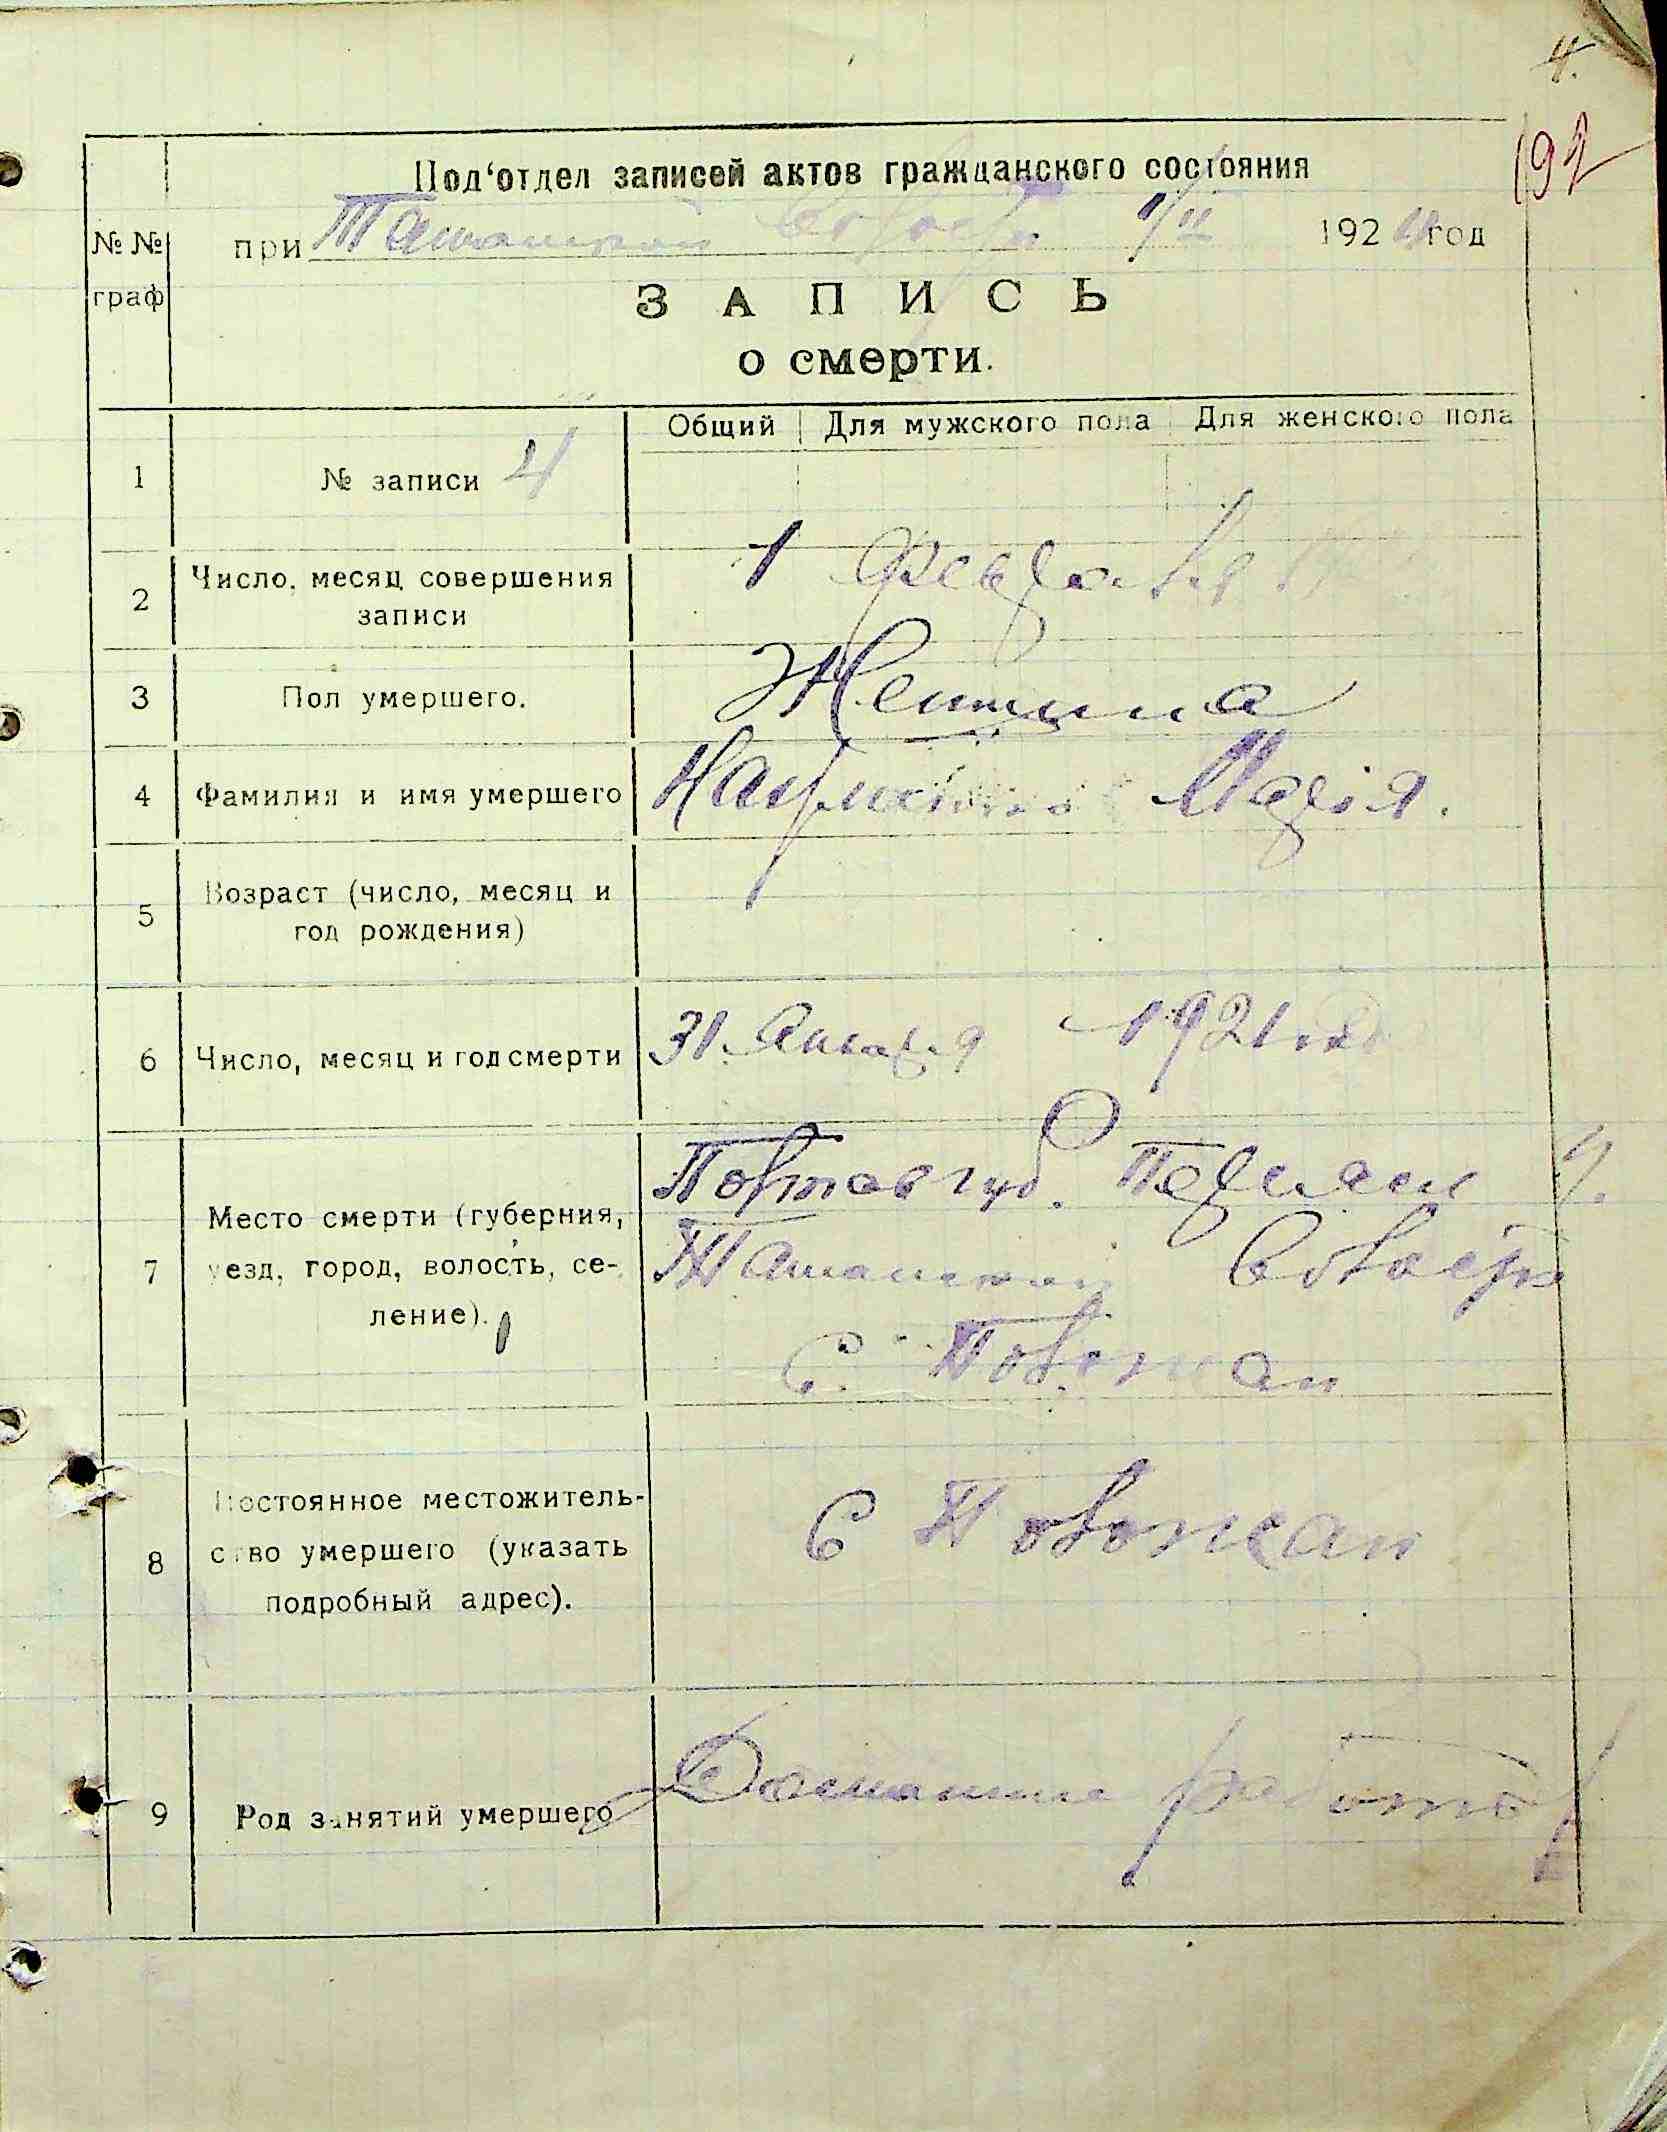 4.
192
Под'отдел записей актов гражданского состояния
№ № при Ташанской волости 1/II 1921 год
граф
ЗАПИСЬ
о смерти.
Общий Для мужского пола Для женского пола
1 № записи 4
2 Число, месяц совершения 1 Февраля
записи
3 Пол умершего. Женщина
4 Фамилия и имя умершего Марія.
5 Возраст (число, месяц и
год рождения)
6 Число, месяц и год смерти 31 Января 1921 года
Полтав губ. Переясл у.
Место смерти (губерния,
7 уезд, город, волость, се- Ташанской волости
ление).
С.
Постоянное местожитель-
8 ство умершего (указать С
подробный адрес).
9 Род занятий умершего Домашние работы